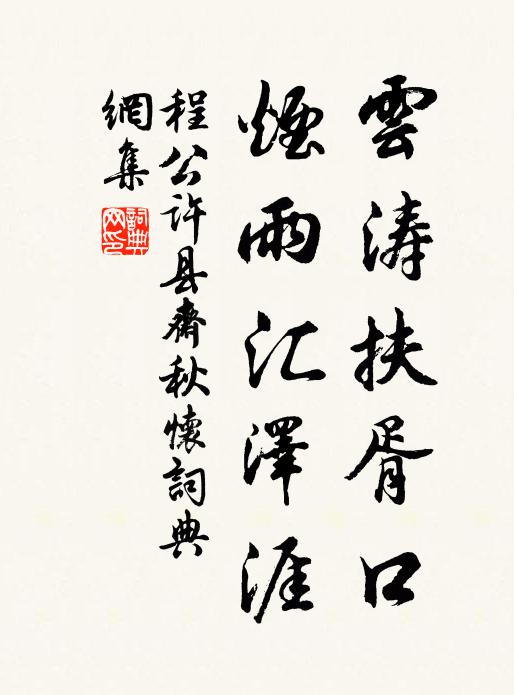 雲涛扶胥口
煙雨汇澤涯
程公许县齋秋懷詞典
網集
詞典
网印